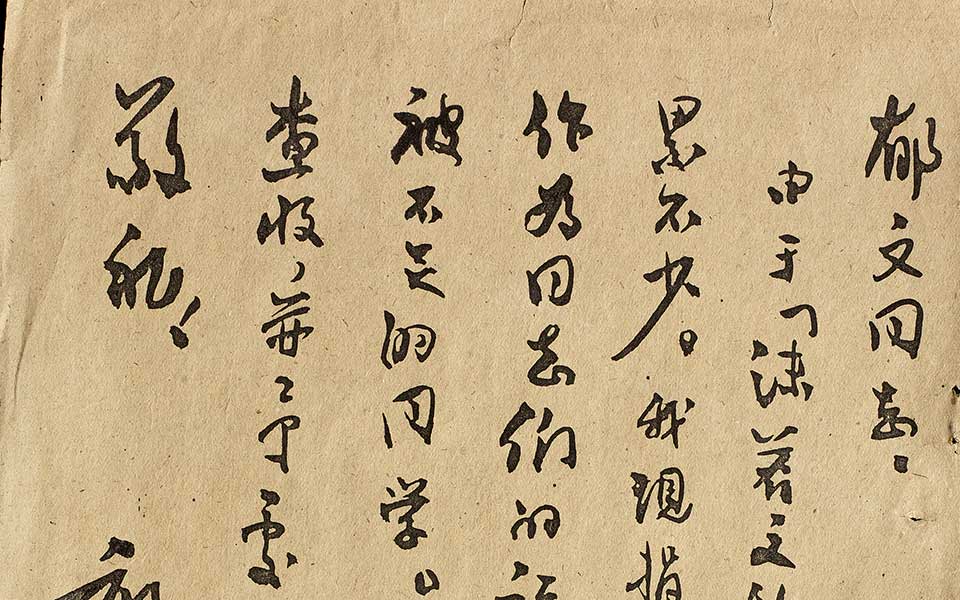 郁文同志：
由于「沫若文
累不少。我现捐
作为同志们的
被不足的同学。
查收，并予处
敬礼！